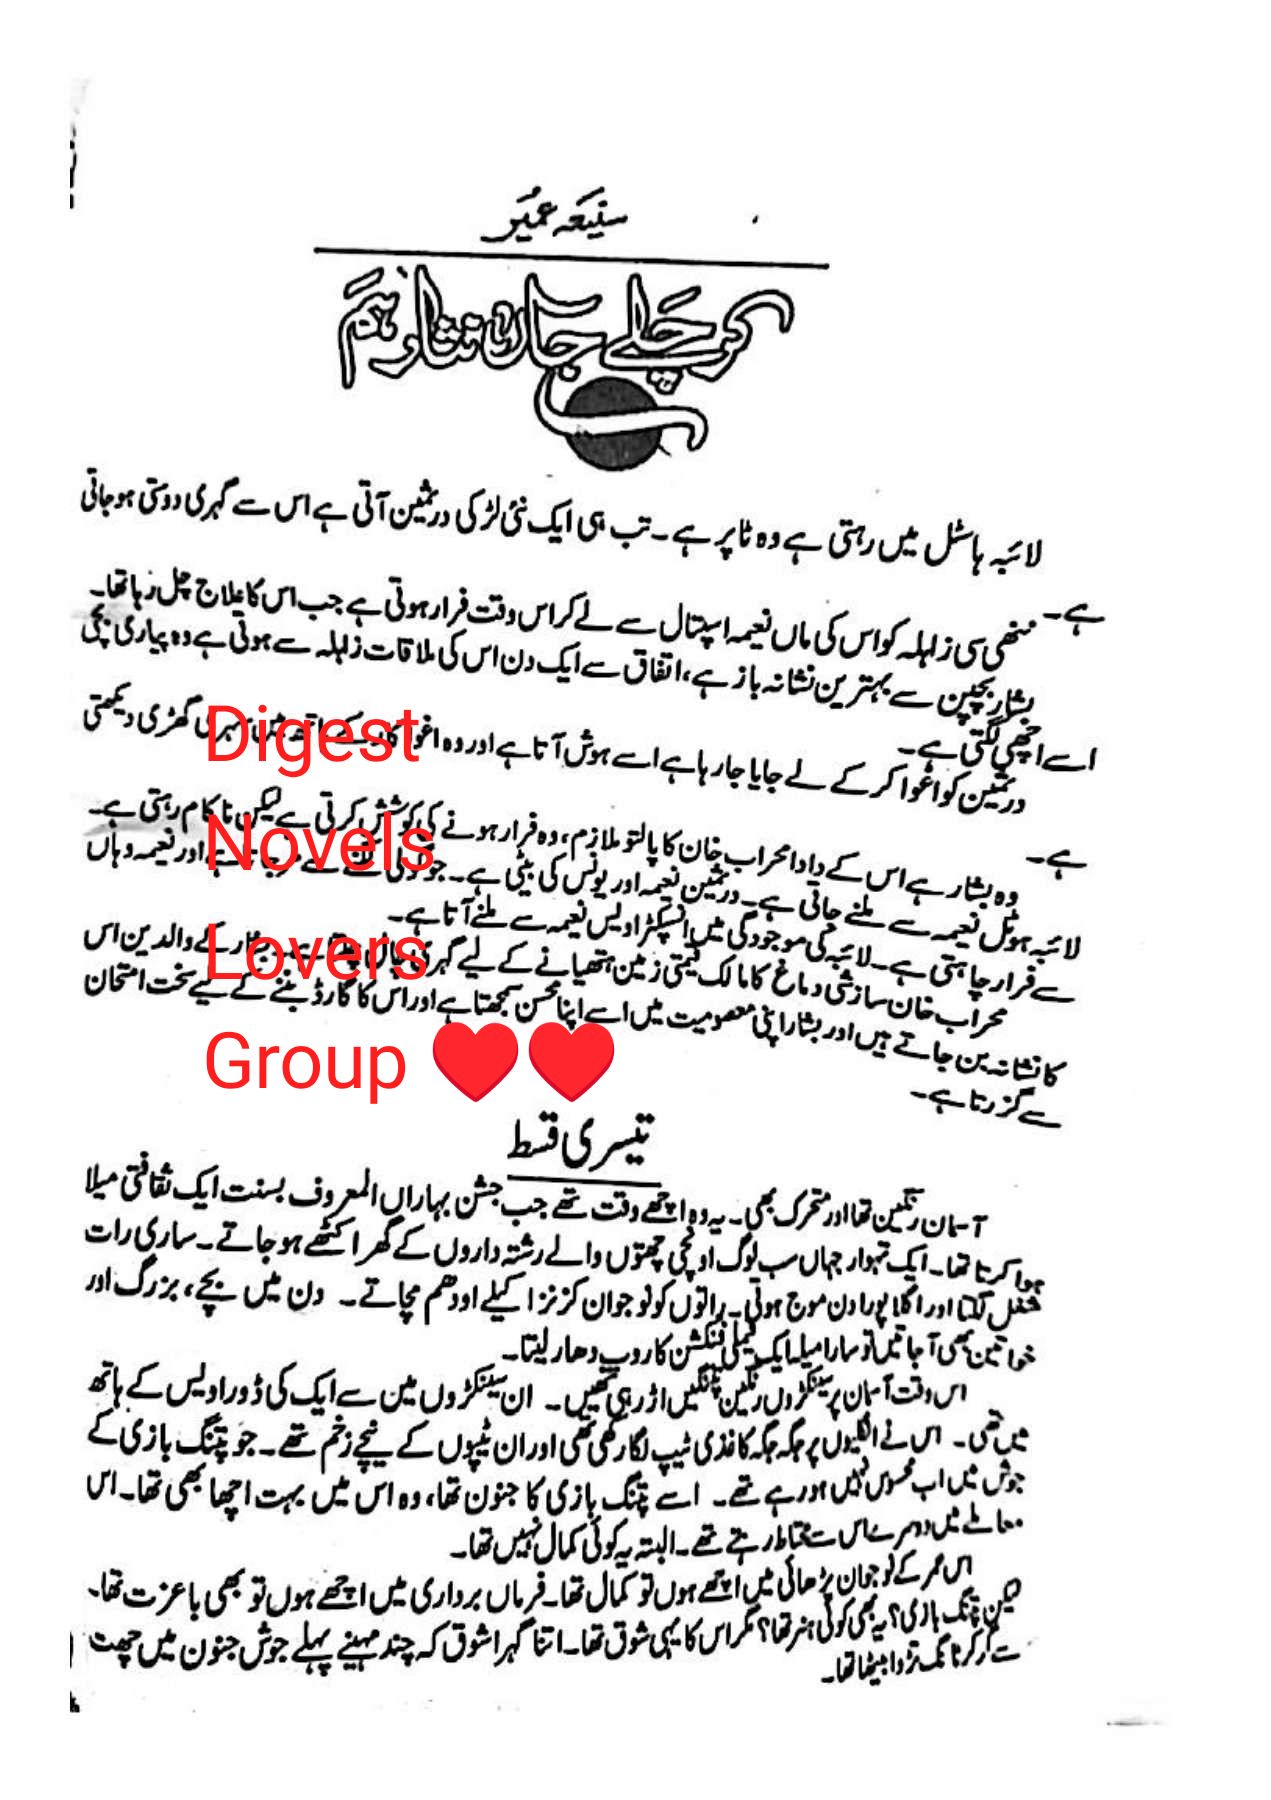 سنیعہ عمیر
کو چلے جاں نثار ہم
لائبہ ہاسٹل میں رہتی ہے وہ ٹاپر ہے۔ تب ہی ایک نئی لڑکی درثمین آتی ہے اس سے گہری دوستی ہوجاتی
ہے۔
ننھی سی زاہلہ کو اس کی ماں نعیمہ اسپتال سے لے کر اس وقت فرار ہوتی ہے جب اس کا علاج چل رہا تھا۔
بشار بچپن سے بہترین نشانہ باز ہے، اتفاق سے ایک دن اس کی ملاقات زاہلہ سے ہوتی ہے وہ پیاری بچی
اسے اچھی لگتی ہے۔
درثمین کو اغوا کر کے لے جایا جا رہا ہے اسے ہوش آتا ہے اور وہ اغوا کار کے ہاتھ میں سہری گھڑی دیکھتی
ہے۔
وہ بشار ہے اس کے دادا محراب خان کا پالتو ملازم، وہ فرار ہونے کی کوشش کرتی ہے لیکن ناکام رہتی ہے۔
لائبہ ہوٹل نعیمہ سے ملنے جاتی ہے۔ درثمین نعیمہ اور یونس کی بیٹی ہے۔ جو گولی لگنے سے مر جاتا ہے اور نعیمہ وہاں
سے فرار چاہتی ہے۔ لائبہ کی موجودگی میں انسپکٹر اویس نعیمہ سے ملنے آتا ہے۔
محراب خان سازشی دماغ کا مالک قیمتی زمین ہتھیانے کے لیے گہری چال چلتا ہے۔ بشار کے والدین اس
کا نشانہ بن جاتے ہیں اور بشار اپنی معصومیت میں اسے اپنا محسن سمجھتا ہے اور اس کا گارڈ بننے کے لیے سخت امتحان
سے گزرتا ہے۔
Digest
Novels
Lovers
Group ♥♥
تیسری قسط
آسمان رنگین تھا اور متحرک بھی۔ یہ وہ اچھے وقت تھے جب جشن بہاراں المعروف بسنت ایک ثقافتی میلا
ہوا کرتا تھا۔ ایک تہوار جہاں سب لوگ اونچی چھتوں والے رشتہ داروں کے گھر اکٹھے ہو جاتے۔ ساری رات
شغل لگتا اور اگلا پورا دن موج ہوتی۔ راتوں کو نوجوان کزنز اکیلے اودھم مچاتے۔ دن میں بچے، بزرگ اور
خواتین بھی آ جاتیں تو سارا میلہ ایک فیملی فنکشن کا روپ دھار لیتا۔
اس وقت آسمان پر سینکڑوں رنگین پتنگیں اڑ رہی تھیں۔ ان سینکڑوں میں سے ایک کی ڈور اویس کے ہاتھ
میں تھی۔ اس نے انگلیوں پر جگہ جگہ کاغذی ٹیپ لگا رکھی تھی اور ان ٹیپوں کے نیچے زخم تھے۔ جو پتنگ بازی کے
جوش میں اب محسوس نہیں ہو رہے تھے۔ اسے پتنگ بازی کا جنون تھا، وہ اس میں بہت اچھا بھی تھا۔ اس
معاملے میں دوسرے اس سے محتاط رہتے تھے۔ البتہ یہ کوئی کمال نہیں تھا۔
اس عمر کے نوجوان پڑھائی میں اچھے ہوں تو کمال تھا۔ فرماں برداری میں اچھے ہوں تو بھی باعزت تھا۔
لیکن پتنگ بازی؟ یہ بھی کوئی ہنر تھا؟ مگر اس کا یہی شوق تھا۔ اتنا گہرا شوق کہ چند مہینے پہلے جوش جنون میں چھت
سے گر کر ٹانگ تڑوا بیٹھا تھا۔